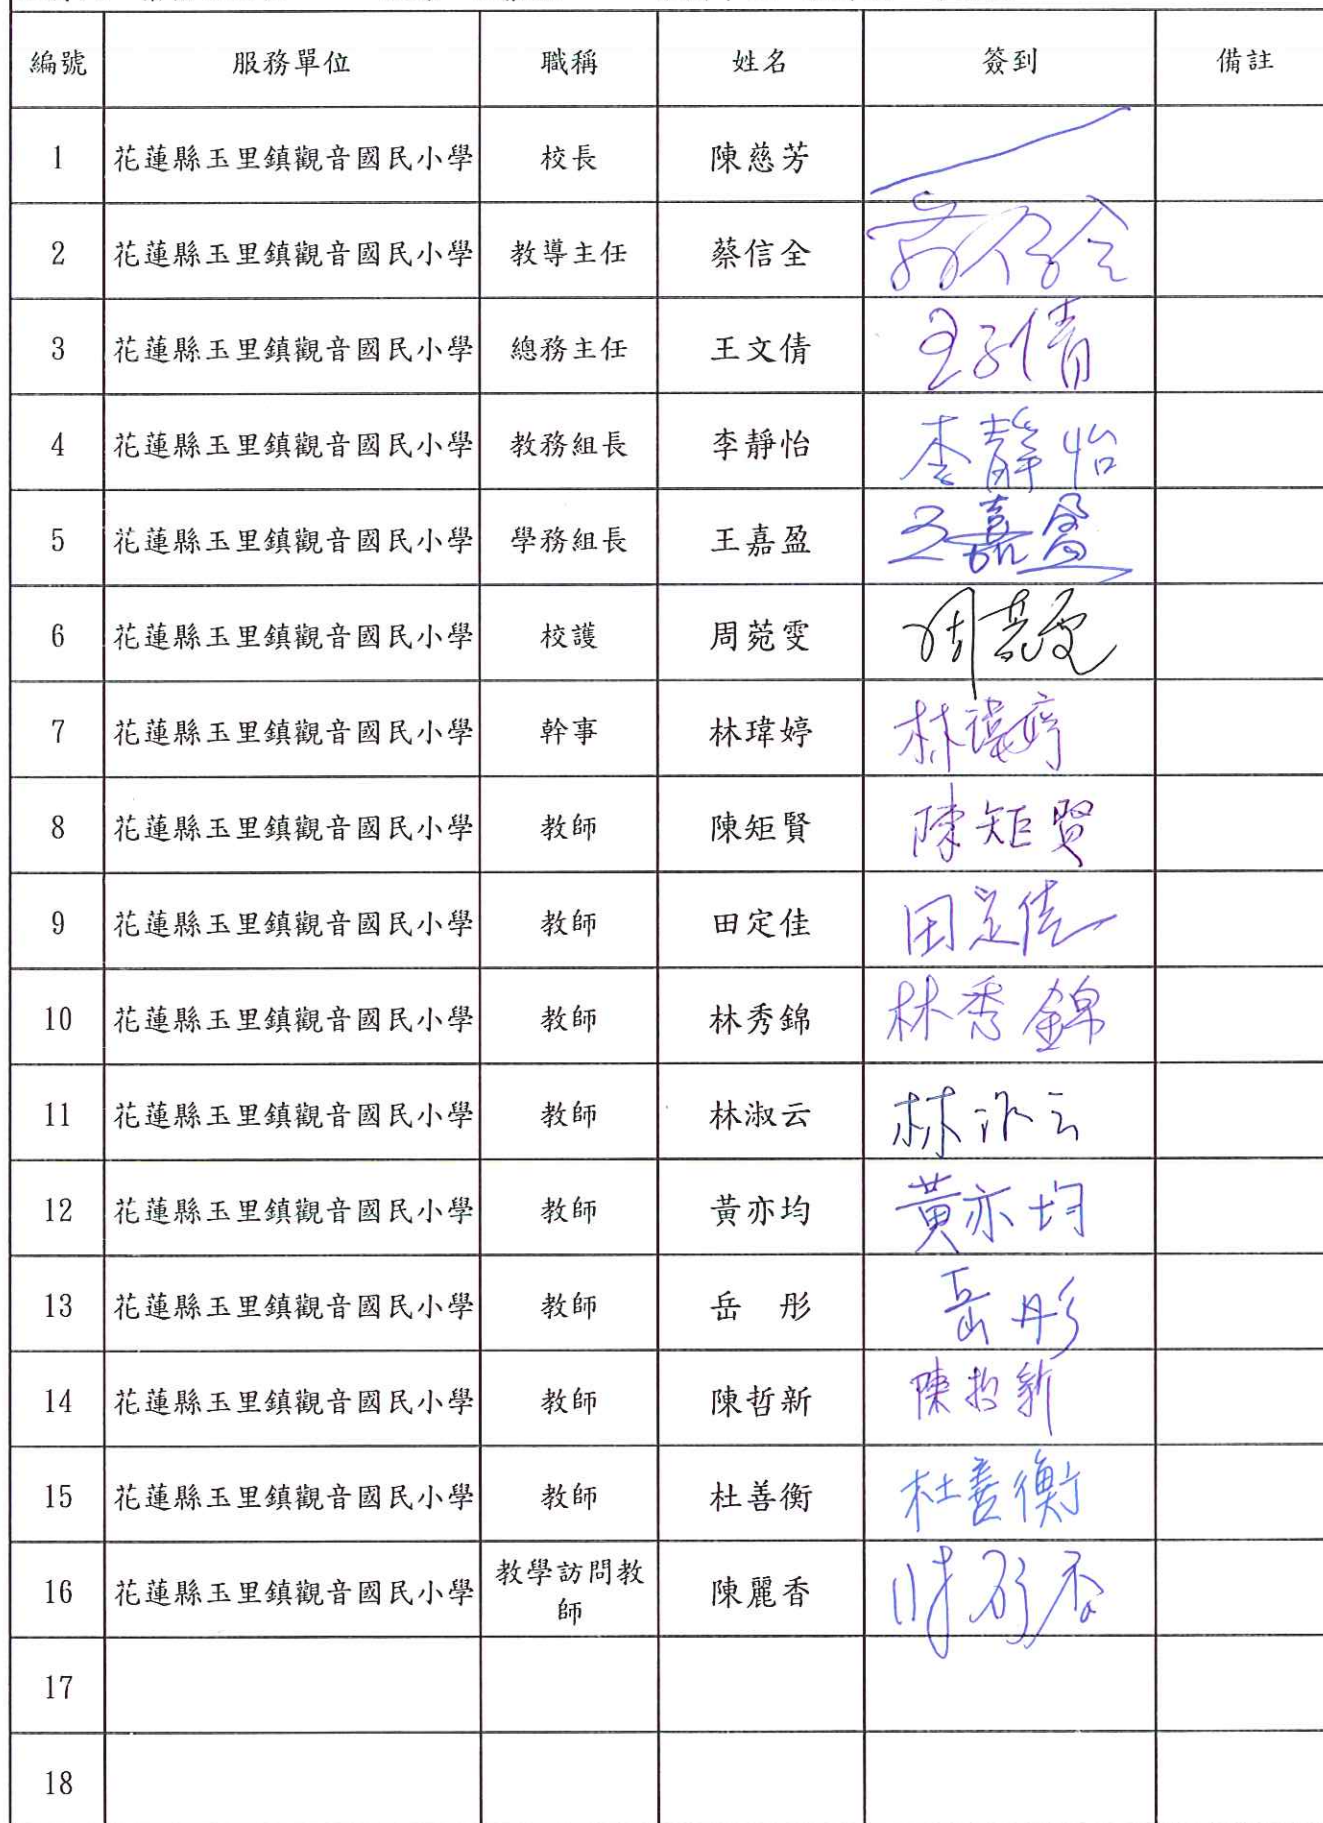 編號 服務單位 職稱 姓名 簽到 備註
1 花蓮縣玉里鎮觀音國民小學 校長 陳慈芳
2 花蓮縣玉里鎮觀音國民小學 教導主任 蔡信全 蔡信全
3 花蓮縣玉里鎮觀音國民小學 總務主任 王文倩 王文倩
4 花蓮縣玉里鎮觀音國民小學 教務組長 李靜怡 李靜怡
5 花蓮縣玉里鎮觀音國民小學 學務組長 王嘉盈 王嘉盈
6 花蓮縣玉里鎮觀音國民小學 校護 周菀雯 周菀雯
7 花蓮縣玉里鎮觀音國民小學 幹事 林瑋婷 林瑋婷
8 花蓮縣玉里鎮觀音國民小學 教師 陳矩賢 陳矩賢
9 花蓮縣玉里鎮觀音國民小學 教師 田定佳 田定佳
10 花蓮縣玉里鎮觀音國民小學 教師 林秀錦 林秀錦
11 花蓮縣玉里鎮觀音國民小學 教師 林淑云 林淑云
12 花蓮縣玉里鎮觀音國民小學 教師 黃亦均 黃亦均
13 花蓮縣玉里鎮觀音國民小學 教師 岳 彤 岳彤
14 花蓮縣玉里鎮觀音國民小學 教師 陳哲新 陳哲新
15 花蓮縣玉里鎮觀音國民小學 教師 杜善衡 杜善衡
16 花蓮縣玉里鎮觀音國民小學 教學訪問教
師 陳麗香 陳麗香
17
18